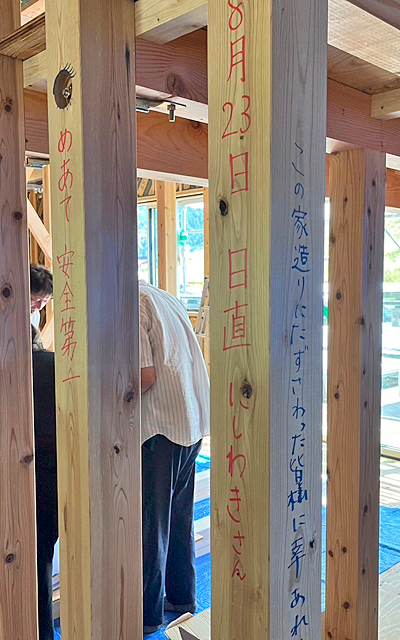 めあて 安全第一
8月23日 日直 にしわきさん
この家造りにたずさわった皆様に幸あれ